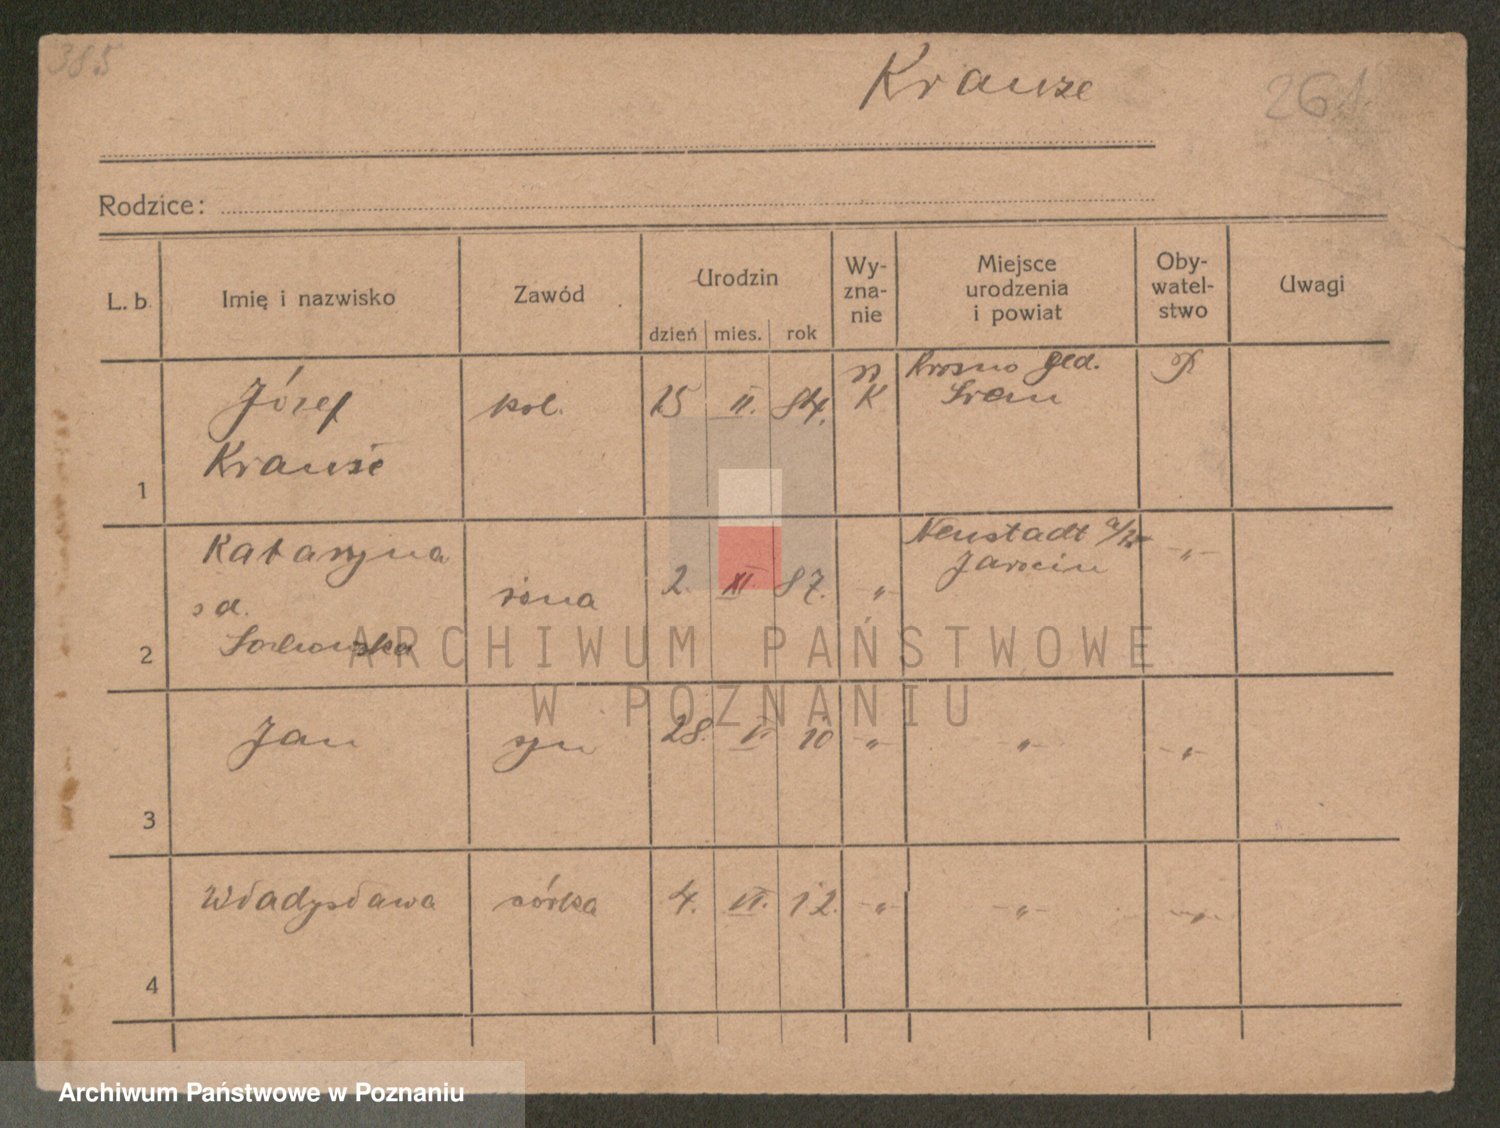 385
Krause
261
Rodzice:
L. b. Imię i nazwisko Zawód Urodzin Wy- Miejsce Oby- Uwagi
zna- urodzenia watel-
nie i powiat stwo
dzień mies. rok
1 Józef kol. 15 II. 84. K Krosno P
Krause Śrem
2 Katarzyna żona 2. XI. 87. " Neustadt a/W "
Jarocin
3 Jan syn 28. V. 10 " " "
4 Władysława córka 4. VI. 12. " " "
ARCHIWUM PAŃSTWOWE
W POZNANIU
Archiwum Państwowe w Poznaniu